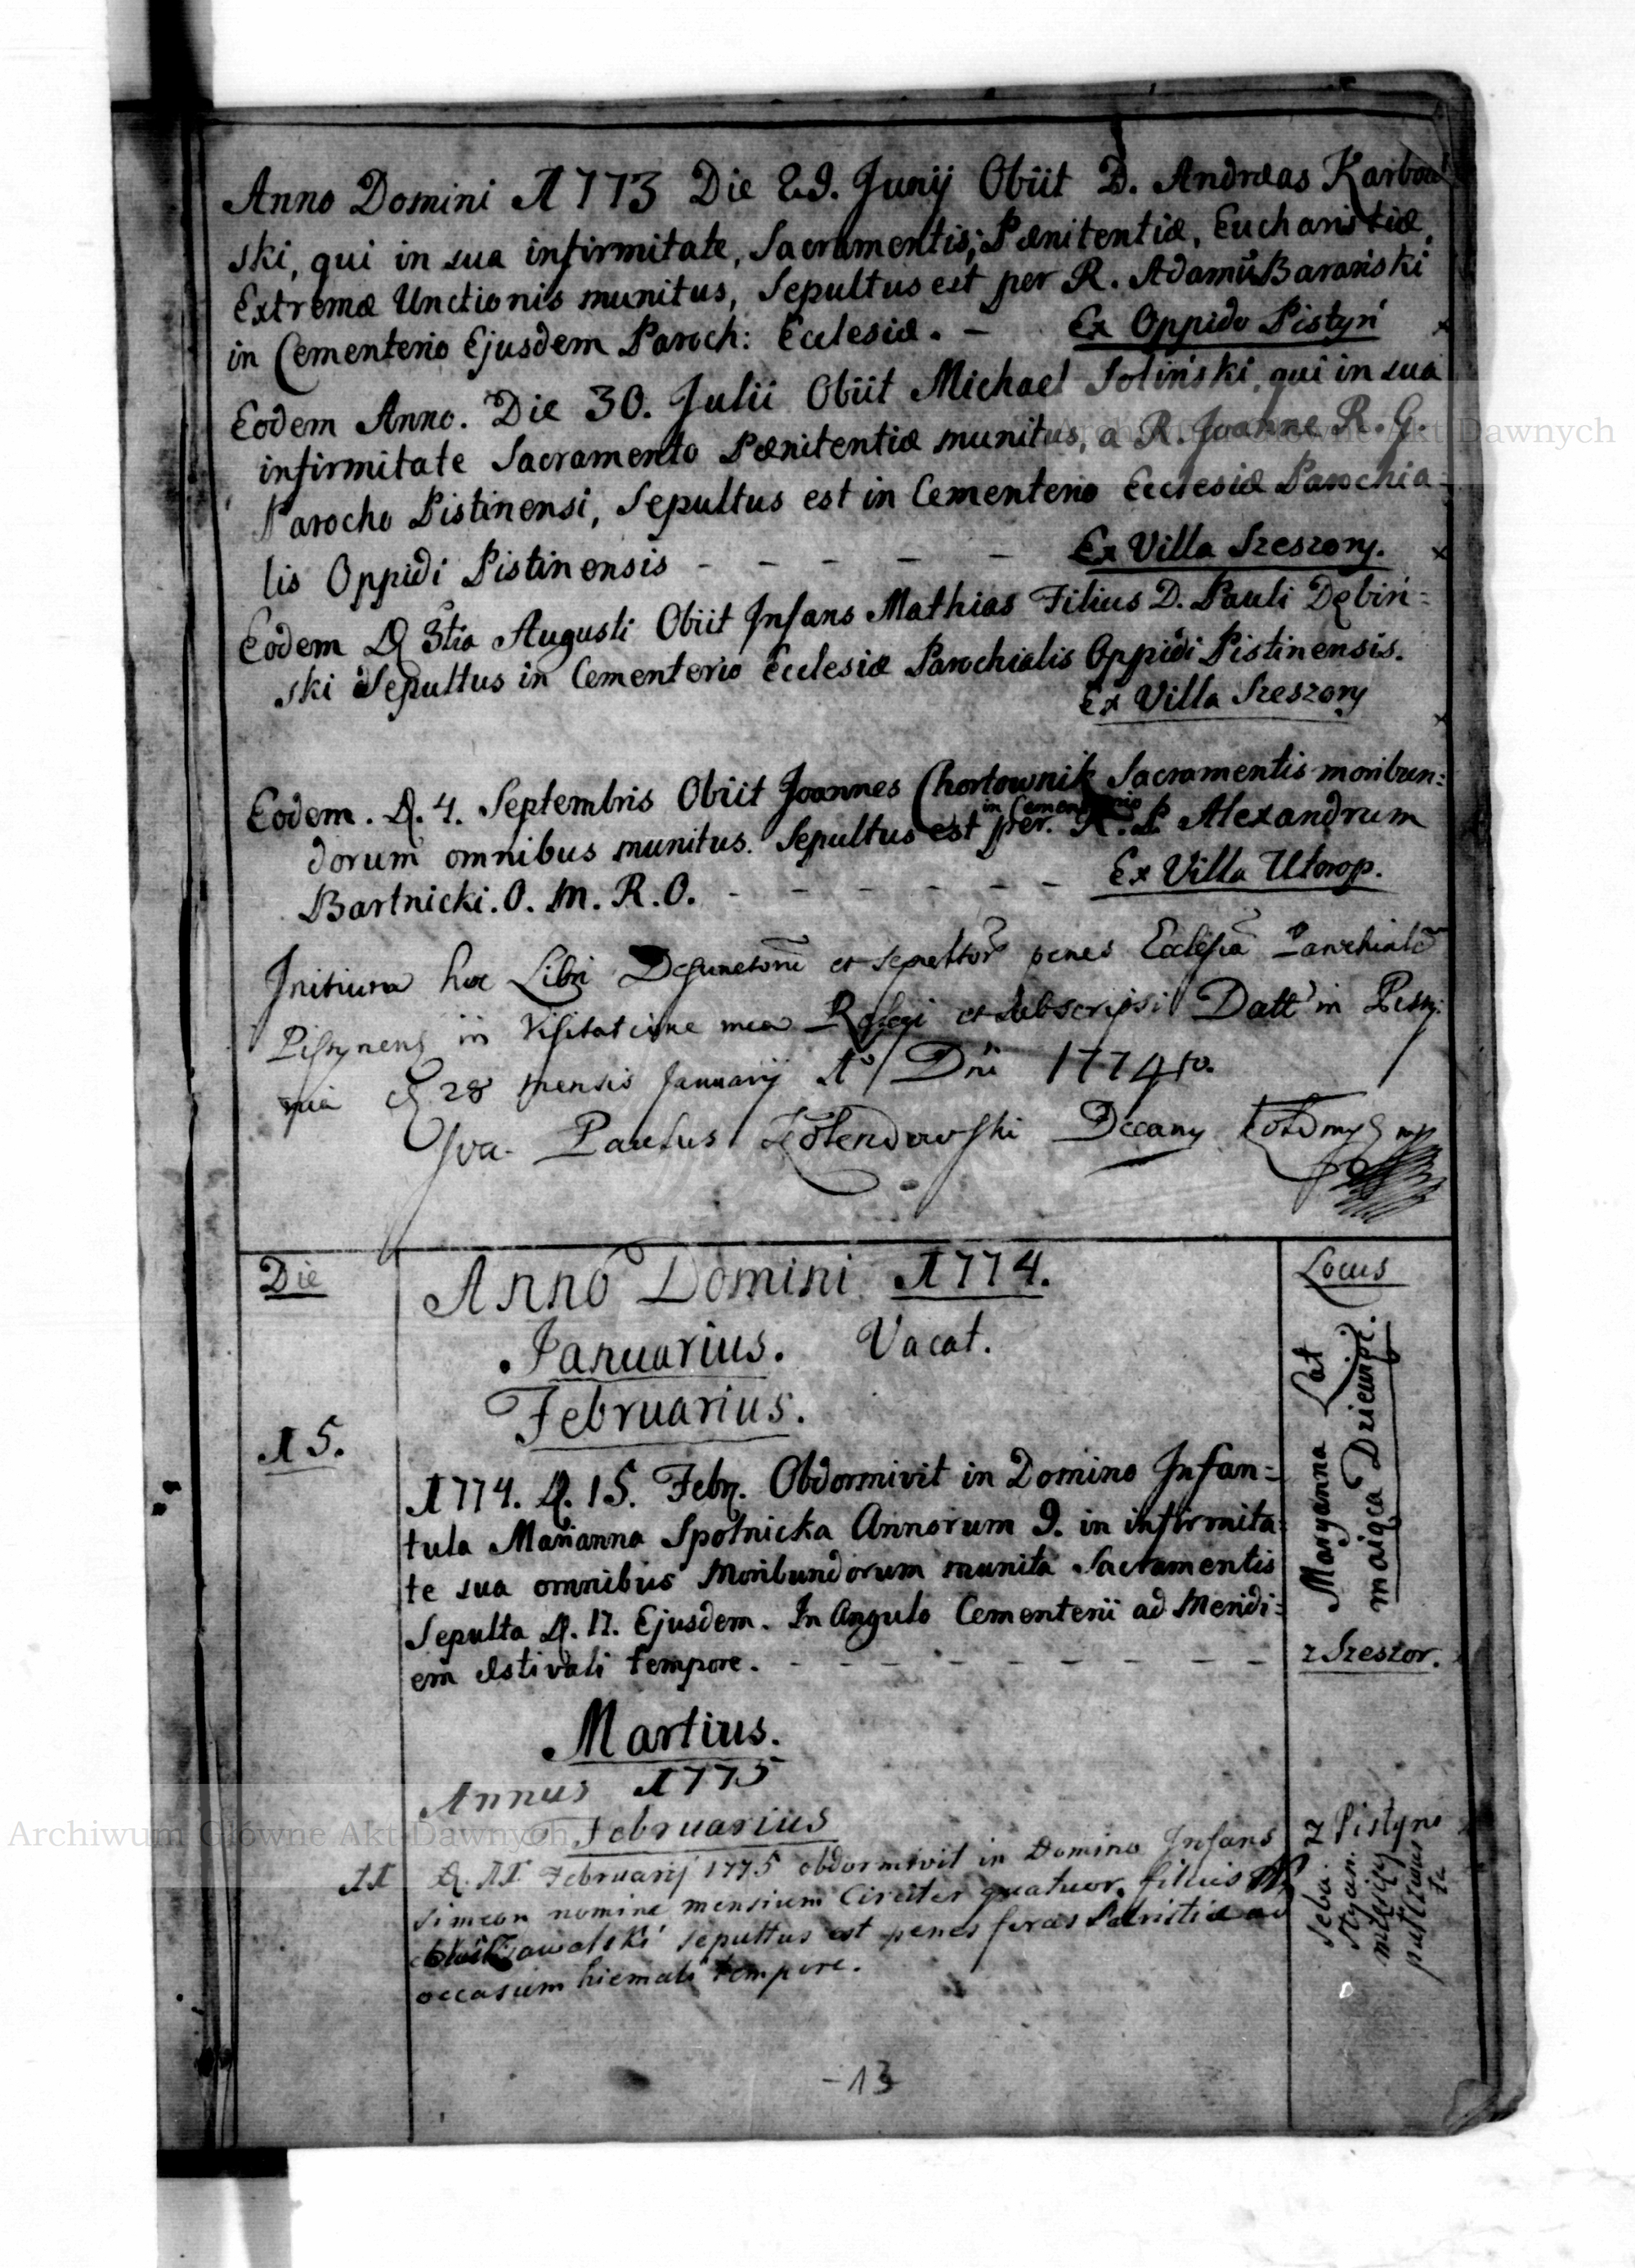 Anno Domini 1773 Die 29. Junij Obiit D. Andreas Karbow
ski, qui in sua infirmitate, Sacramentis; Pænitentiæ, Eucharistiæ,
Extremæ Unctionis munitus, Sepultus est per R. Adamũ Barański
in Cementerio Ejusdem Paroch: Ecclesiæ. – Ex Oppido Pistyń
Eodem Anno. Die 30. Julii Obiit Michael Soliński, qui in sua
infirmitate Sacramento Pænitentiæ munitus, a R. Joanne R. G.
Parocho Pistinensi, Sepultus est in Cementerio Ecclesiæ Parochia-
lis Oppidi Pistinensis - - - - - Ex Villa Szeszory.
Eodem D. 3tia Augusti Obiit Infans Mathias Filius D. Pauli Dębiń=
ski Sepultus in Cementerio Ecclesiæ Parochialis Oppidi Pistinensis.
Ex Villa Szeszory
Eodem. D. 4. Septembris Obiit Joannes Chortownik Sacramentis moribun=
in Cementerio
dorum omnibus munitus. Sepultus est per. R. P. Alexandrum
Bartnicki. O. M. R. O. - - - - - - Ex Villa Utorop.
Initium hoc Libri Defunctorũ et sepultor̃ penes Ecclesiã Parochialẽ
Pistynens in Visitatione mea et subscripsi Datt in Pisty:
nia D 28 mensis Januarij Ao Dni 1774to.
Paulus Decany
Die
Anno Domini 1774.
Locus
Januarius. Vacat.
Februarius.
15.
1774. D. 15. Febr. Obdormivit in Domino Infan=
tula Marianna Spolnicka Annorum 9. in infirmita=
te sua omnibus Moribundorum munita Sacramentis
Sepulta D. 17. Ejusdem. In Angulo Cementerii ad Meridi=
em æstivali tempore. - - - - - - - - -
Maryanna Lat
maiąca Dziewięć.
z Szeszor.
Martius.
Annus 1775
Februarius
11
D. 11. Februarij 1775 obdormivit in Domino Infans
Simeon nomine mensium Circiter quatuor, filius
Kowalski sepultus est penes fores Sacristiæ ad
occasum hiemali tempore.
Z Pistyno
Seba.
styan.
miesięcy
- 13